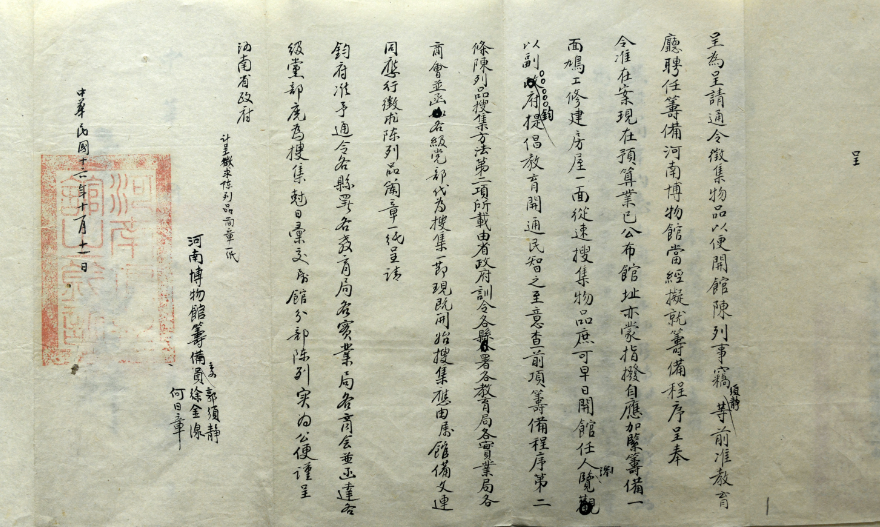 呈
呈為呈請通令徵集物品以便開館陳列事竊須靜等前准教育
廳聘任籌備河南博物館當經擬就籌備程序呈奉
令准在案現在預算業已公布館址亦蒙指撥自應加緊籌備一
面鳩工修建房屋一面從速搜集物品庶可早日開館任人游覽觀
以副鈞府提倡教育開通民智之至意查前項籌備程序第二
條陳列品搜集方法第二項所載由省政府訓令各縣署各教育局各實業局各
商會並函各級党部代為搜集一節現既開始搜集應由屬館備文連
同應行徵求陳列品簡章一紙呈請
鈞府准予通令各縣署各教育局各實業局各商會並函達各
級黨部廣為搜集尅日彙交屬館分部陳列实為公便謹呈
河南省政府
計呈徵求陳列品簡章一紙
河南博物館籌備員郭須靜
徐金泉
何日章
中華民國十六年十月十一日